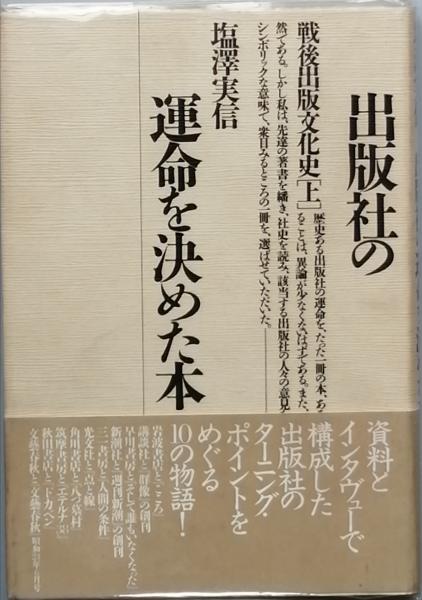 出版社の
運命を決めた本
戦後出版文化史［上］
塩澤実信
歴史ある出版社の運命を、たった一冊の本、あ
ることは、異論が少なくないはずである。また、
然である。しかし私は、先達の著書を繙き、社史を読み、該当する出版社の人々の意見
シンボリックな意味で、衆目みるところの一冊を、選ばせていただいた。
資料と
インタヴューで
構成した
出版社の
ターニング
ポイントを
めぐる
10の物語！
岩波書店と「こころ」
講談社と「群像」の創刊
早川書房と「そして誰もいなくなった」
新潮社と「週刊新潮」の創刊
三一書房と「人間の條件」
光文社と「点と線」
角川書店と「八つ墓村」
筑摩書房と「エナルナ」
秋田書店と「ドカベン」
文藝春秋と「文藝春秋」昭和